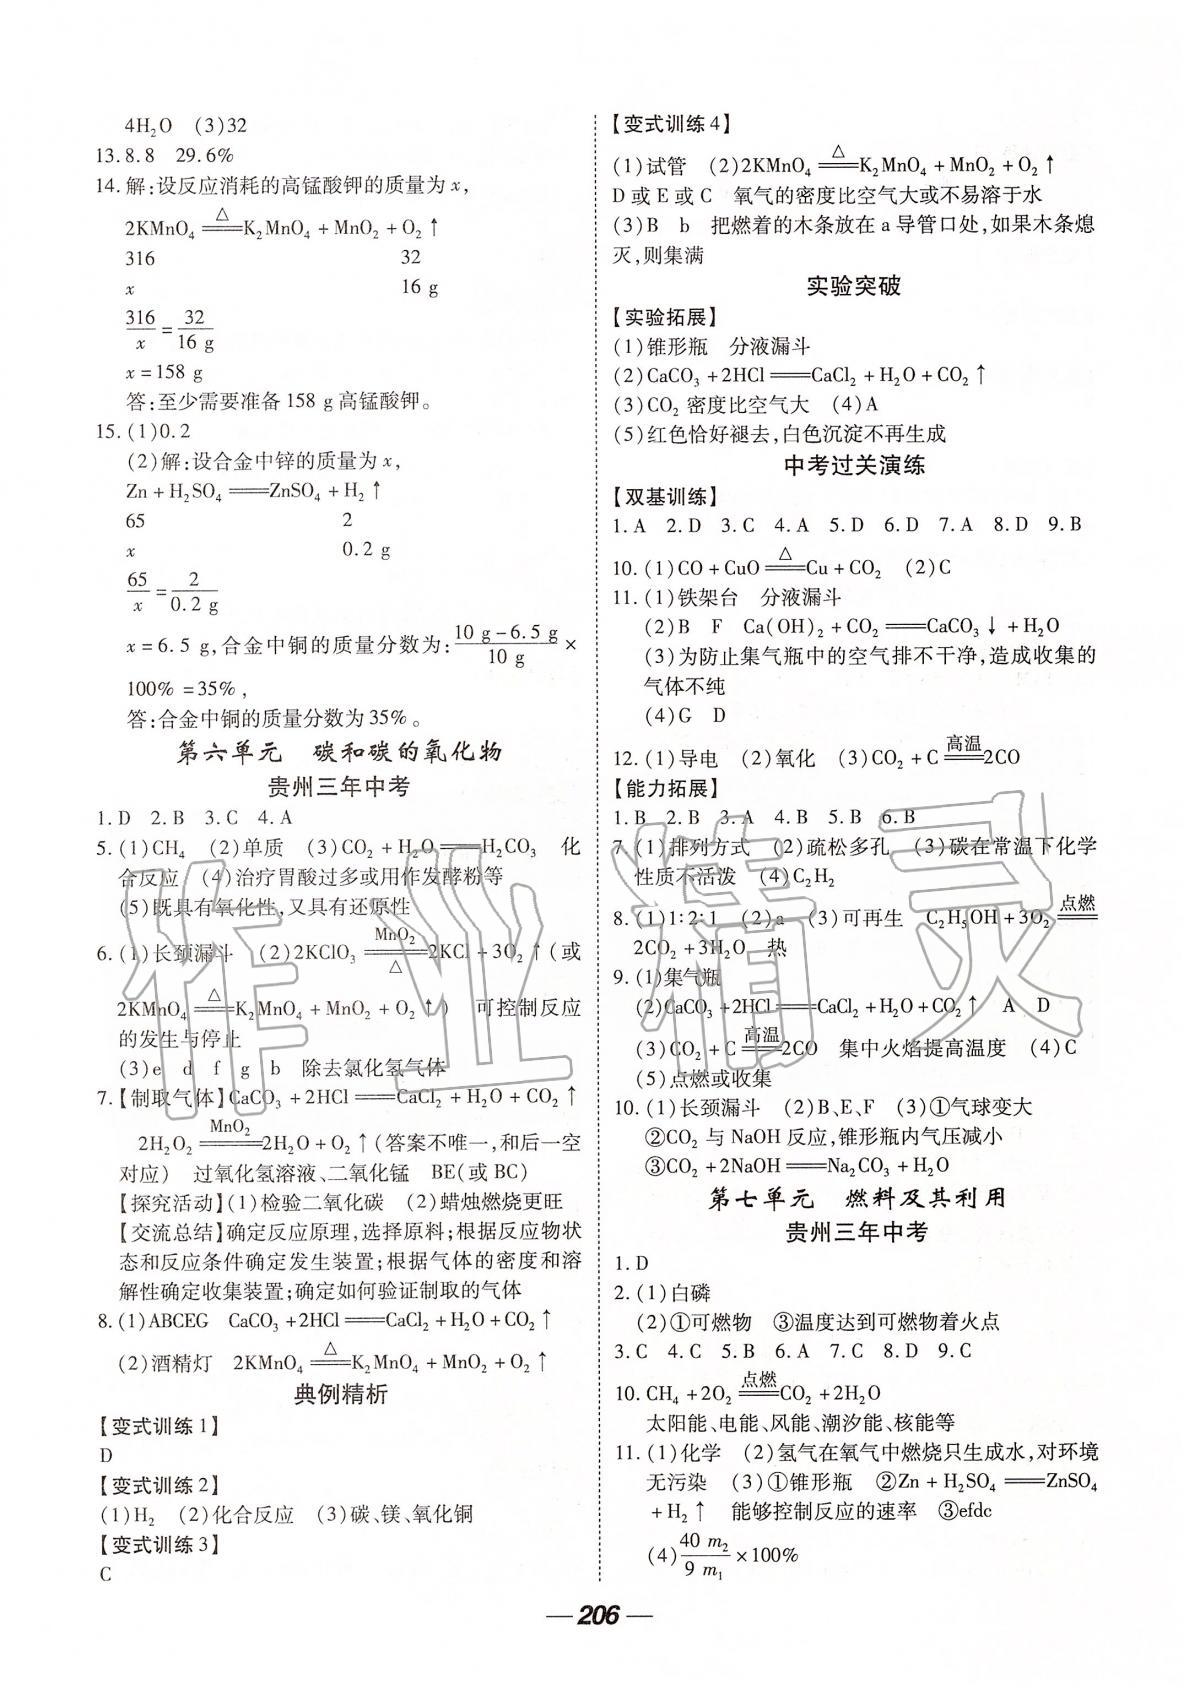 4H₂O (3)32
13.8.8 29.6%
14.解:设反应消耗的高锰酸钾的质量为x,
2KMnO₄ ≜ K₂MnO₄+MnO₂+O₂↑
316 32
x 16 g
316/x = 32/16 g
x=158 g
答:至少需要准备158 g高锰酸钾。
15.(1)0.2
(2)解:设合金中锌的质量为x,
Zn+H₂SO₄══ZnSO₄+H₂↑
65 2
x 0.2 g
65/x = 2/0.2 g
x=6.5 g,合金中铜的质量分数为:(10 g-6.5 g)/10 g×
100%=35%,
答:合金中铜的质量分数为35%。
第六单元 碳和碳的氧化物
贵州三年中考
1.D 2.B 3.C 4.A
5.(1)CH₄ (2)单质 (3)CO₂+H₂O══H₂CO₃ 化
合反应 (4)治疗胃酸过多或用作发酵粉等
(5)既具有氧化性,又具有还原性
6.(1)长颈漏斗 (2)2KClO₃ ══(MnO₂/△) 2KCl+3O₂↑(或
2KMnO₄ ≜ K₂MnO₄+MnO₂+O₂↑) 可控制反应
的发生与停止
(3)e d f g b 除去氯化氢气体
7.【制取气体】CaCO₃+2HCl══CaCl₂+H₂O+CO₂↑
2H₂O₂ ══(MnO₂) 2H₂O+O₂↑(答案不唯一,和后一空
对应) 过氧化氢溶液、二氧化锰 BE(或BC)
【探究活动】(1)检验二氧化碳 (2)蜡烛燃烧更旺
【交流总结】确定反应原理,选择原料;根据反应物状
态和反应条件确定发生装置;根据气体的密度和溶
解性确定收集装置;确定如何验证制取的气体
8.(1)ABCEG CaCO₃+2HCl══CaCl₂+H₂O+CO₂↑
(2)酒精灯 2KMnO₄ ≜ K₂MnO₄+MnO₂+O₂↑
典例精析
【变式训练1】
D
【变式训练2】
(1)H₂ (2)化合反应 (3)碳、镁、氧化铜
【变式训练3】
C
【变式训练4】
(1)试管 (2)2KMnO₄ ≜ K₂MnO₄+MnO₂+O₂↑
D或E或C 氧气的密度比空气大或不易溶于水
(3)B b 把燃着的木条放在a导管口处,如果木条熄
灭,则集满
实验突破
【实验拓展】
(1)锥形瓶 分液漏斗
(2)CaCO₃+2HCl══CaCl₂+H₂O+CO₂↑
(3)CO₂密度比空气大 (4)A
(5)红色恰好褪去,白色沉淀不再生成
中考过关演练
【双基训练】
1.A 2.D 3.C 4.A 5.D 6.D 7.A 8.D 9.B
10.(1)CO+CuO ≜ Cu+CO₂ (2)C
11.(1)铁架台 分液漏斗
(2)B F Ca(OH)₂+CO₂══CaCO₃↓+H₂O
(3)为防止集气瓶中的空气排不干净,造成收集的
气体不纯
(4)G D
12.(1)导电 (2)氧化 (3)CO₂+C ══(高温) 2CO
【能力拓展】
1.B 2.B 3.A 4.B 5.B 6.B
7.(1)排列方式 (2)疏松多孔 (3)碳在常温下化学
性质不活泼 (4)C₂H₂
8.(1)1:2:1 (2)a (3)可再生 C₂H₅OH+3O₂ ══(点燃)
2CO₂+3H₂O 热
9.(1)集气瓶
(2)CaCO₃+2HCl══CaCl₂+H₂O+CO₂↑ A D
(3)CO₂+C ══(高温) 2CO 集中火焰提高温度 (4)C
(5)点燃或收集
10.(1)长颈漏斗 (2)B、E、F (3)①气球变大
②CO₂与NaOH反应,锥形瓶内气压减小
③CO₂+2NaOH══Na₂CO₃+H₂O
第七单元 燃料及其利用
贵州三年中考
1.D
2.(1)白磷
(2)①可燃物 ③温度达到可燃物着火点
3.C 4.C 5.B 6.A 7.C 8.D 9.C
10.CH₄+2O₂ ══(点燃) CO₂+2H₂O
太阳能、电能、风能、潮汐能、核能等
11.(1)化学 (2)氢气在氧气中燃烧只生成水,对环境
无污染 (3)①锥形瓶 ②Zn+H₂SO₄══ZnSO₄
+H₂↑ 能够控制反应的速率 ③efdc
(4)40 m₂/9 m₁×100%
— 206 —
作业精灵